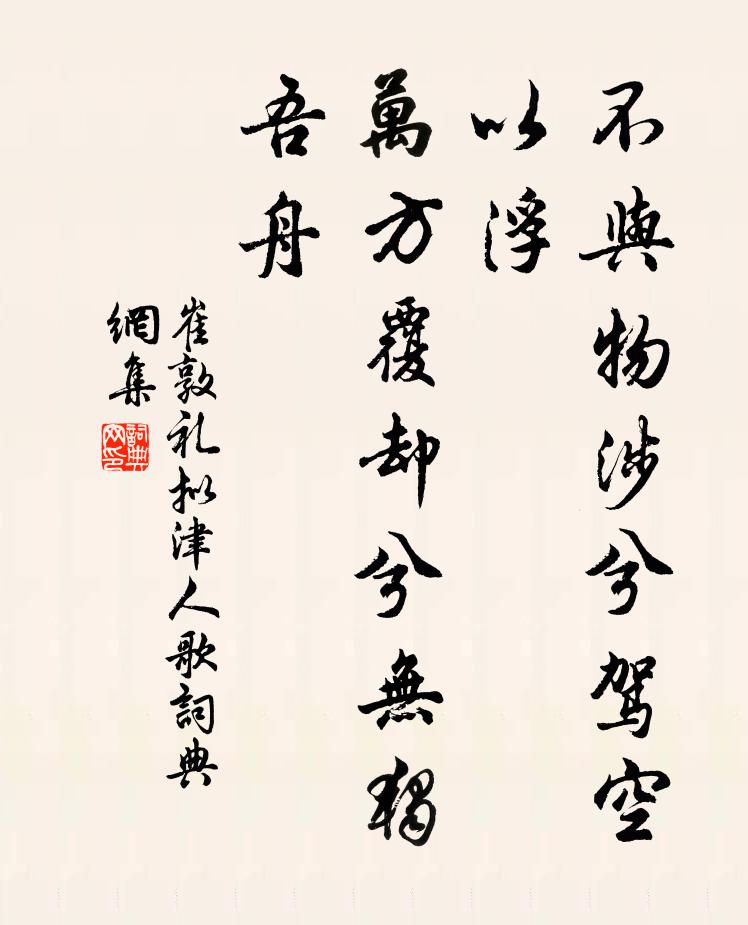 不與物涉兮駕空
以浮
萬方覆却兮無獨
吾舟
崔敦礼拟津人歌詞典
網集
詞典
网印